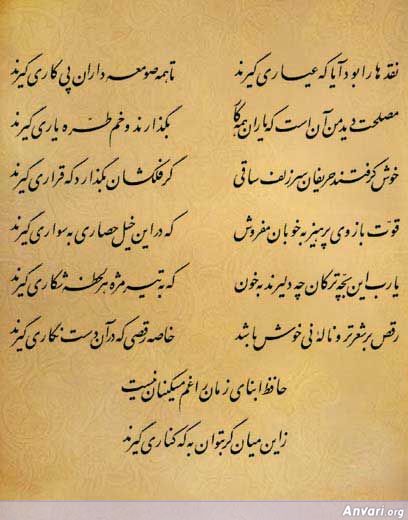 نقدها را بود آیا که عیاری گیرند تا همه صومعه داران پی کاری گیرند
مصلحت دید من آن است که یاران همه کار بگذارند و خم طره یاری گیرند
خوش گرفتند حریفان سر زلف ساقی گر فلکشان بگذارد که قراری گیرند
قوت بازوی پرهیز به خوبان مفروش که در این خیل حصاری به سواری گیرند
یارب این بچه ترکان چه دلیرند به خون که به تیر مژه هر لحظه شکاری گیرند
رقص بر شعر تر و ناله نی خوش باشد خاصه رقصی که در آن دست نگاری گیرند
حافظ ابنای زمان را غم مسکینان نیست
زاین میان گر بتوان به که کناری گیرند
Anvari.org